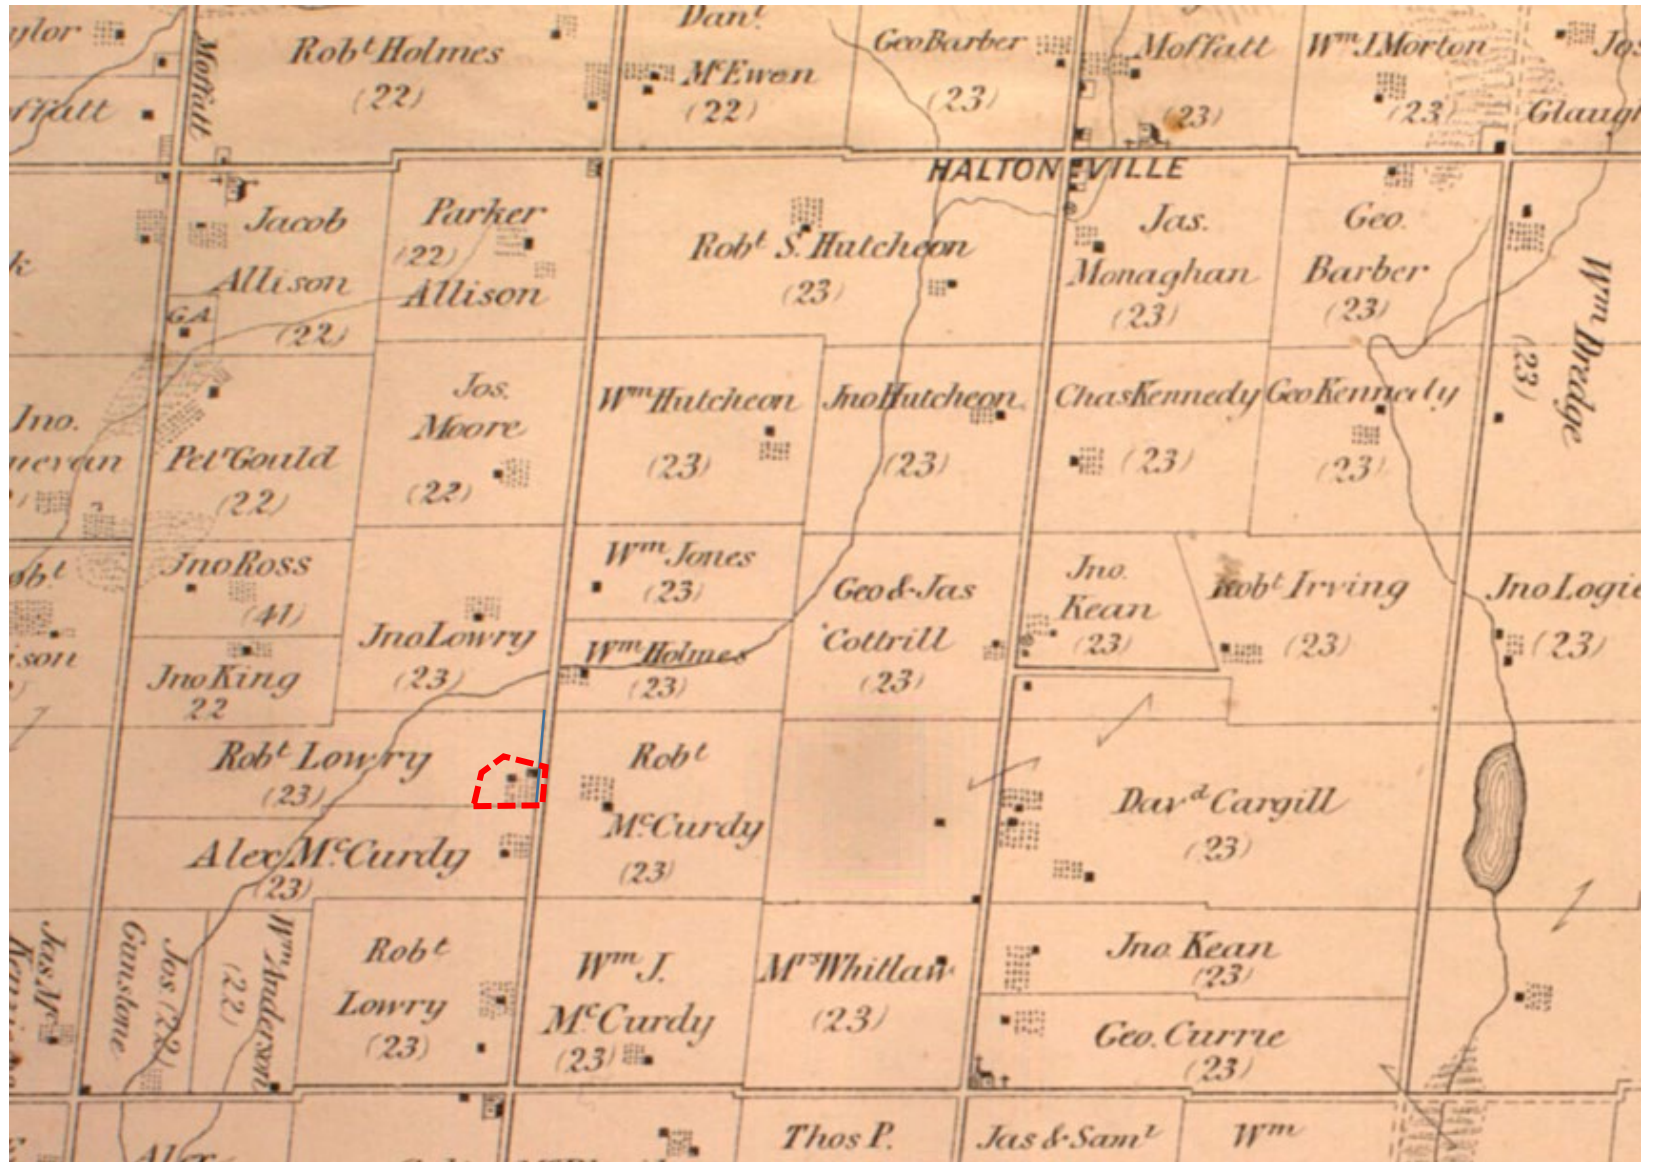 Moffatt
Robt Holmes
(22)
Danl
McEwen
(22)
Geo Barber
(23)
Moffatt
(23)
Wm J. Morton
(23)
HALTONVILLE
Jacob
Allison
(22)
G.A.
Parker
(22)
Allison
Robt S. Hutcheon
(23)
Jas.
Monaghan
(23)
Geo.
Barber
(23)
Wm Dredge
(23)
Jno.
Petr Gould
(22)
Jos.
Moore
(22)
Wm Hutcheon
(23)
Jno Hutcheon
(23)
Chas Kennedy
(23)
Geo Kennedy
(23)
Jno Ross
(41)
Jno King
22
Jno Lowry
(23)
Wm Jones
(23)
Wm Holmes
(23)
Geo & Jas
Cottrill
(23)
Jno.
Kean
(23)
Robt Irving
(23)
Jno Logie
(23)
Robt Lowry
(23)
Alex McCurdy
(23)
Robt
McCurdy
(23)
Davd Cargill
(23)
Jos (22)
Ganstone
Wm Anderson
(22)
Robt
Lowry
(23)
Wm J.
McCurdy
(23)
Mrs Whitlaw
(23)
Jno. Kean
(23)
Geo. Currie
(23)
Alex
Thos P.
Jas & Saml
Wm